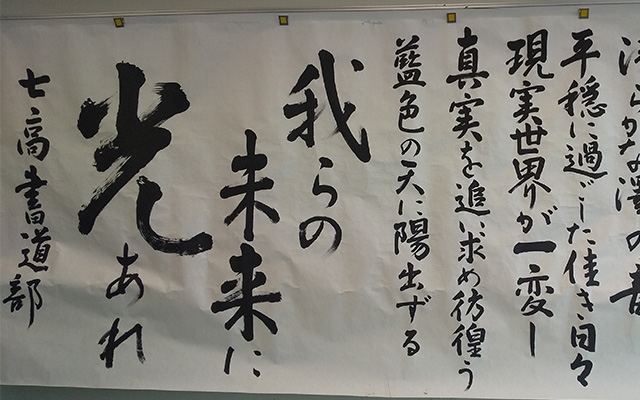 清らかな澤の音
平穏に過ごした佳き日々
現実世界が一変し
真実を追い求め彷徨う
藍色の天に陽出ずる
我らの
未来に
光あれ
七高書道部